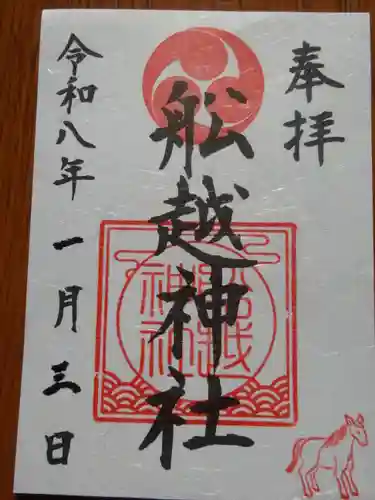 奉拝
舩越神社
令和八年一月三日
舩越神社